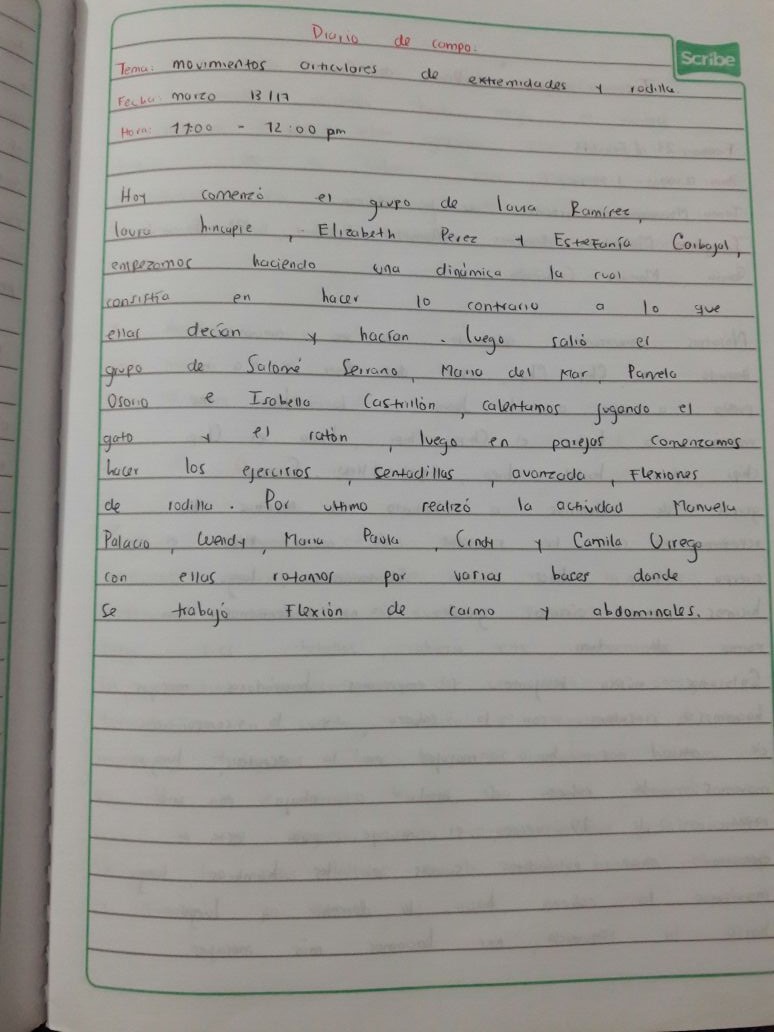 Diario de campo.
Scribe
Tema: movimientos articulares de extremidades y rodilla.
Fecha: marzo 13/17
Hora: 11:00 - 12:00 pm
Hoy comenzó el grupo de laura Ramírez,
laura hincapie, Elizabeth Perez y Estefanía Carbajal,
empezamos haciendo una dinámica la cual
consistía en hacer lo contrario a lo que
ellas decían y hacían. luego salió el
grupo de Salomé Serrano, Maria del Mar, Pamela
Osorio e Isabella Castrillón, calentamos jugando el
gato y el ratón, luego en parejas comenzamos
hacer los ejercisios, sentadillas, avanzada, Flexiones
de rodilla. Por ultimo realizó la actividad Manuela
Palacio, Wendy, Maria Paula, Cindy y Camila Urrego
con ellas rotamos por varias baces donde
se trabajó Flexión de carmo y abdominales.